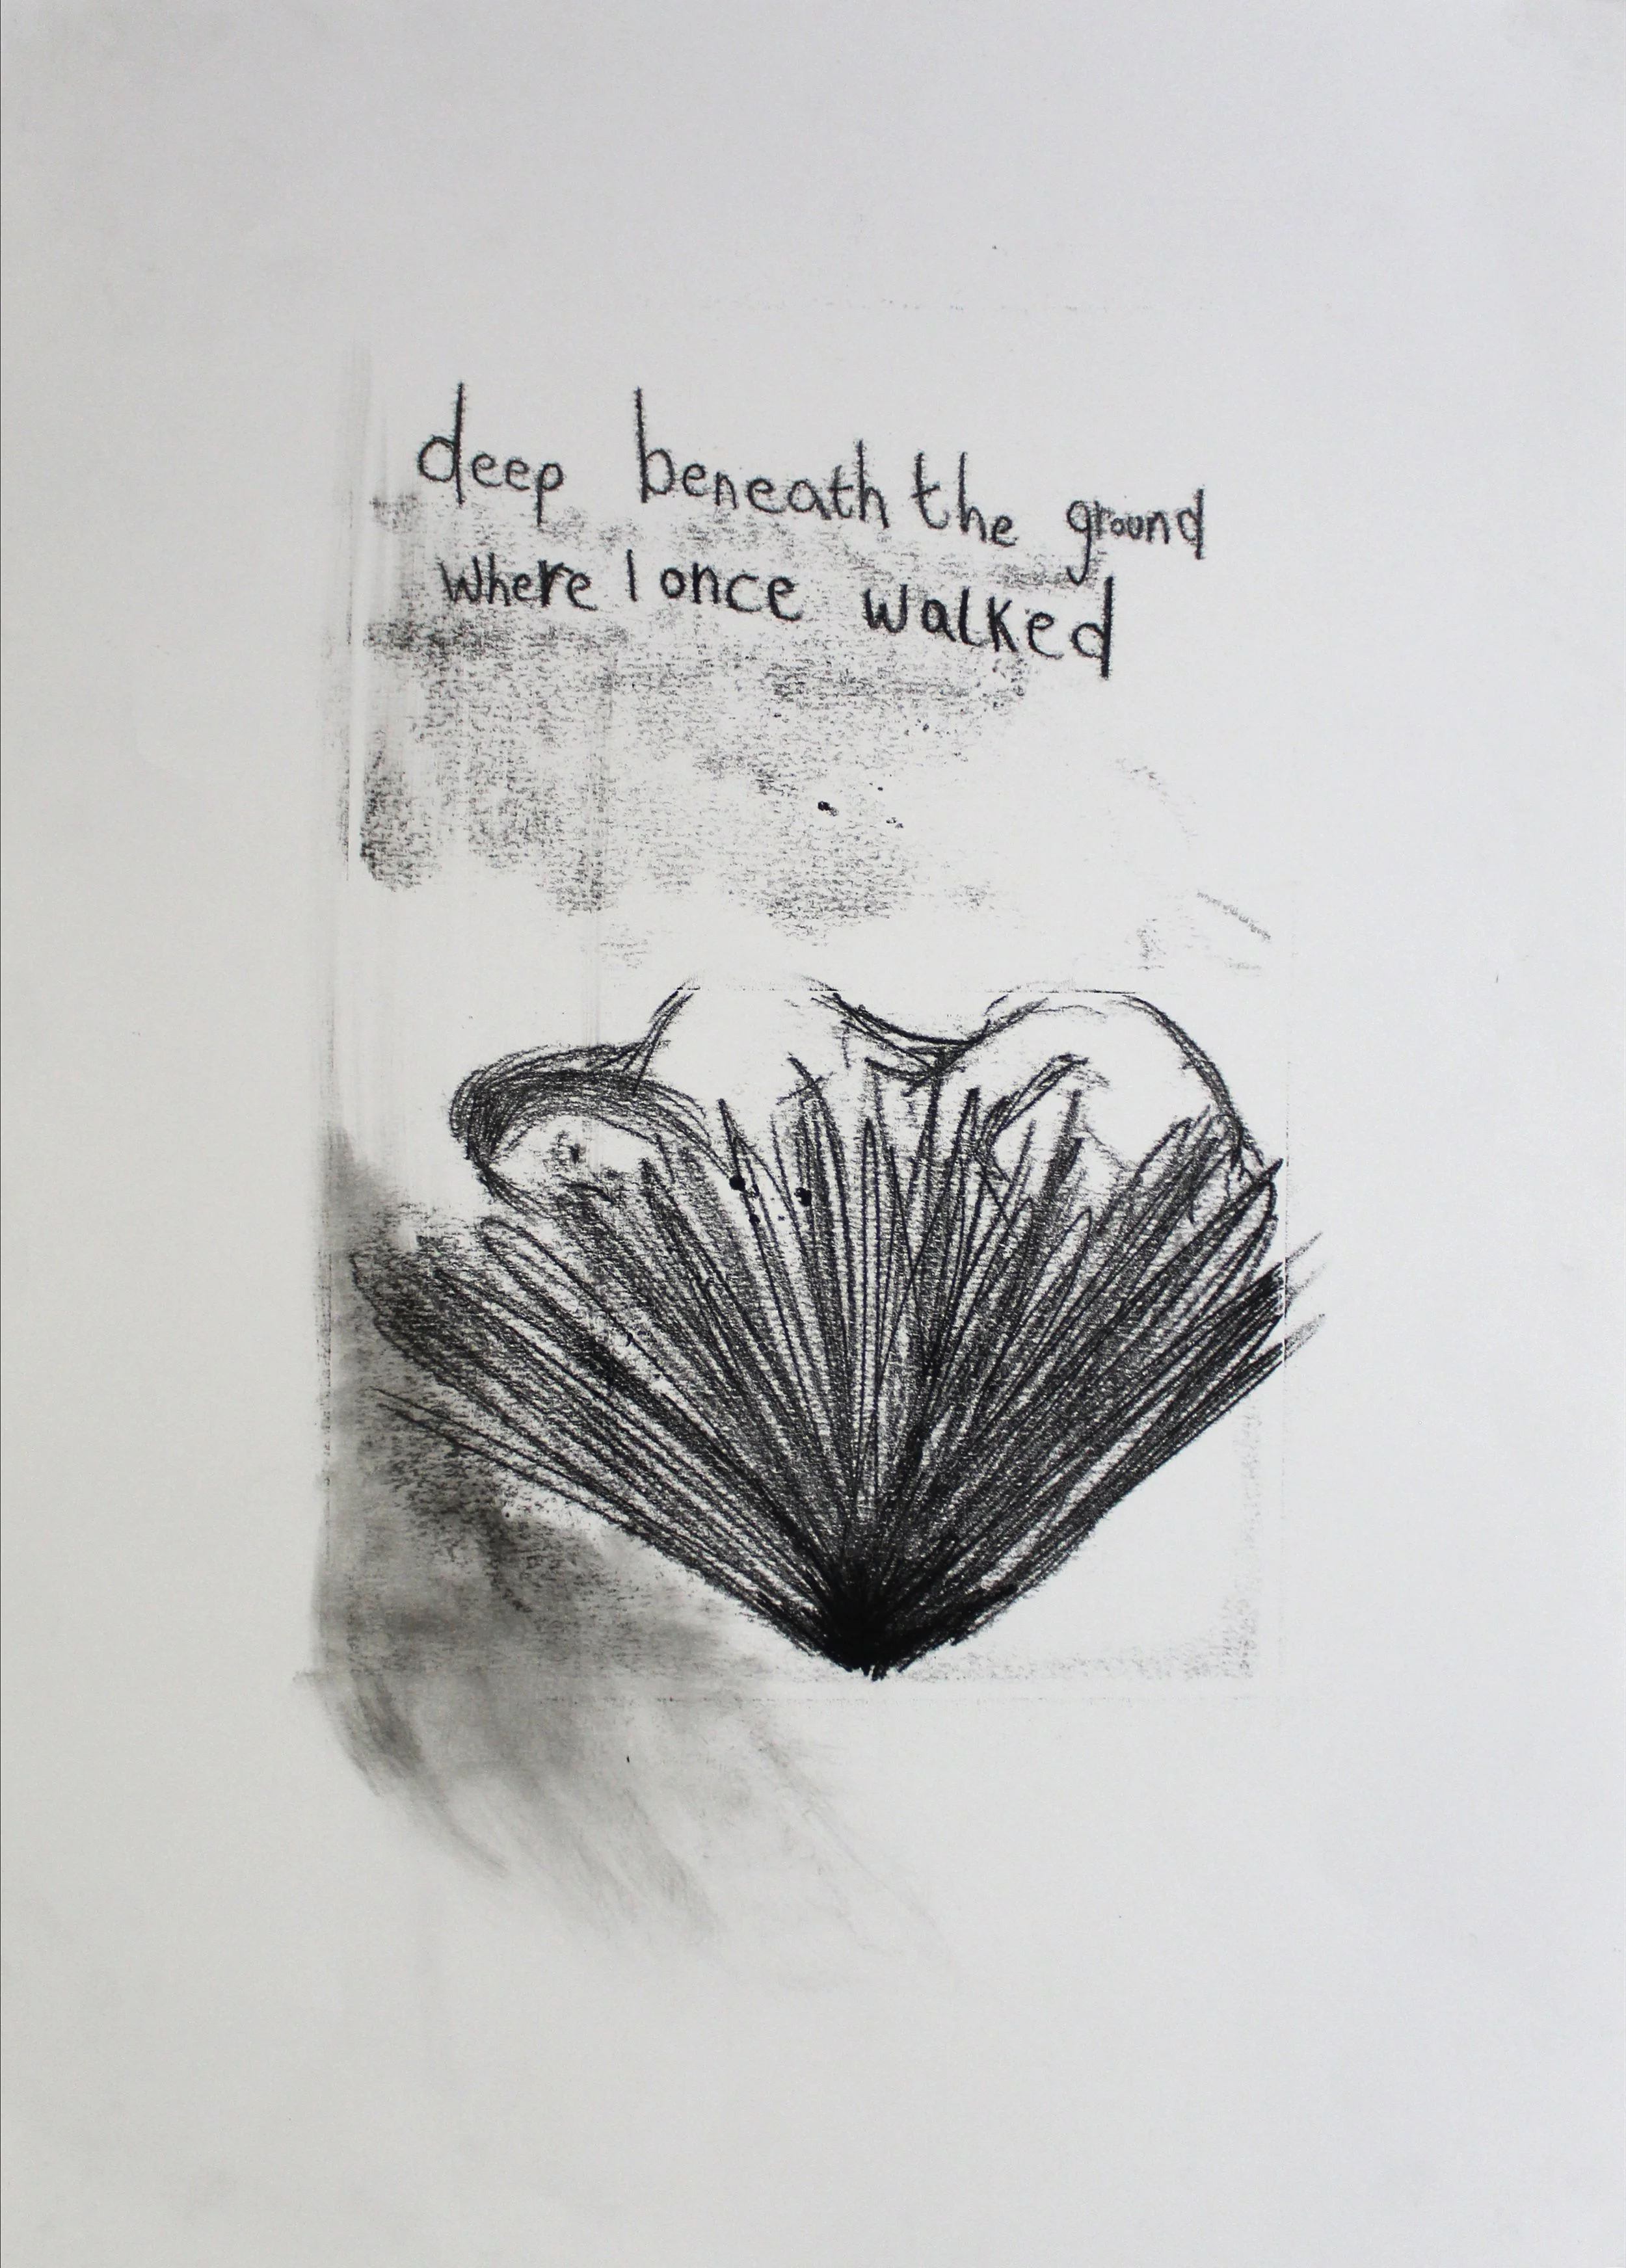 deep beneath the ground
where I once walked